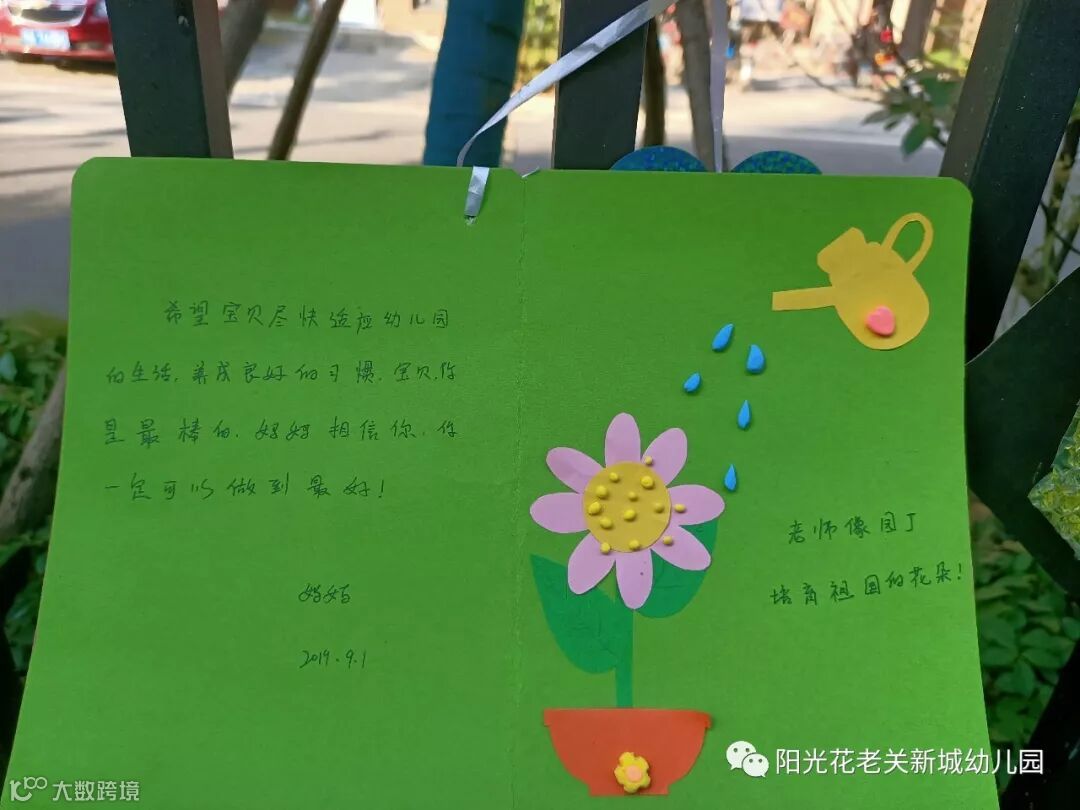 希望宝贝尽快适应幼儿园
的生活,养成良好的习惯,宝贝,你
是最棒的,妈妈相信你,你
一定可以做到最好!
妈妈
2019.9.1
老师像园丁
培育祖国的花朵!
阳光花老关新城幼儿园
大数跨境